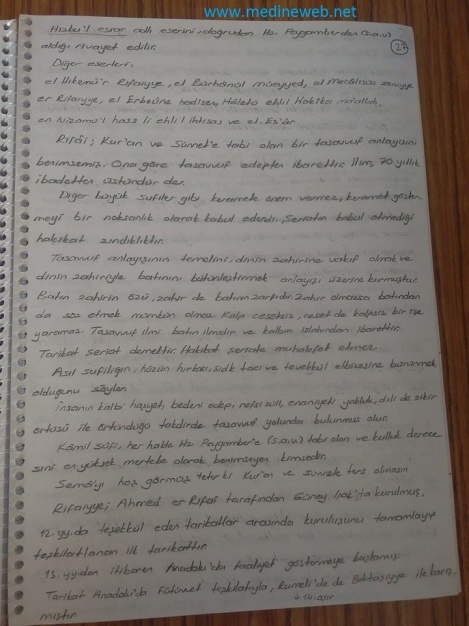 www.medineweb.net
27
Hizbu'l esrar adlı eserini, doğrudan Hz. Peygamberden (s.a.v)
aldığı rivayet edilir.
Diğer eserleri:
el Hikemü'r Rifaiyye, el Bürhanül müeyyed, el Mecalisüs seniyye
er Rifaiyye, el Erbeüne hadisen, Haletü ehlil Hakika maallah,
en Nizamu'l hass li ehli'l ihtisas ve el-Es'ar.
Rifâi; Kur'an ve Sünnet'e tabi olan bir tasavvuf anlayışını
benimsemiş. Ona göre tasavvuf edepten ibarettir. İlim, 70 yıllık
ibadetten üstündür der.
Diğer büyük sufiler gibi keramete önem vermez, keramet göster
meyi bir noksanlık olarak kabul ederdi, Şeriatın kabul etmediği
hakikat zındıklıktır.
Tasavvuf anlayışının temelini, dinin zahirine vakıf olmak ve
dinin zahiriyle batınını bütünleştirmek anlayışı üzerine kurmuştur.
Batın zahirin özü, zahir de batının zarfıdır. Zahir olmazsa batından
da söz etmek mümkün olmaz. Kalp cesetsiz, ceset de kalpsiz bir işe
yaramaz. Tasavvuf ilmi batın ilmidir ve kalbin ıslahından ibarettir.
Tarikat şeriat demektir. Hakikat şeriate muhalefet etmez.
Asıl sufiliğin, hüzün hırkası, sıdk tacı ve tevekkül elbisesine bürünmek
olduğunu söyler.
İnsanın kalbi haşyet, bedeni edep, nefsi zül, enaniyeti yokluk, dili de zikir
örtüsü ile örtündüğü takdirde tasavvuf yolunda bulunmuş olur.
Kâmil sûfi, her halde Hz. Peygamber'e (s.a.v) tabi olan ve kulluk derece
sini en yüksek mertebe olarak benimseyen kimsedir.
Semâ'yı hoş görmüş Kur'an ve sünnete ters olmasın
Rifaiyye; Ahmed er Rifai tarafından Güney Irak'ta kurulmuş.
12. yy.da teşekkül eden tarikatlar arasında kuruluşunu tamamlayıp
teşkilatlanan ilk tarikattır.
13. yy.dan itibaren Anadolu'da faaliyet göstermeye başlamış.
Tarikat Anadolu'da Fütüvvet teşkilatıyla, Rumeli'de de Bektaşiyye ile karış
14. asır
mıştır.